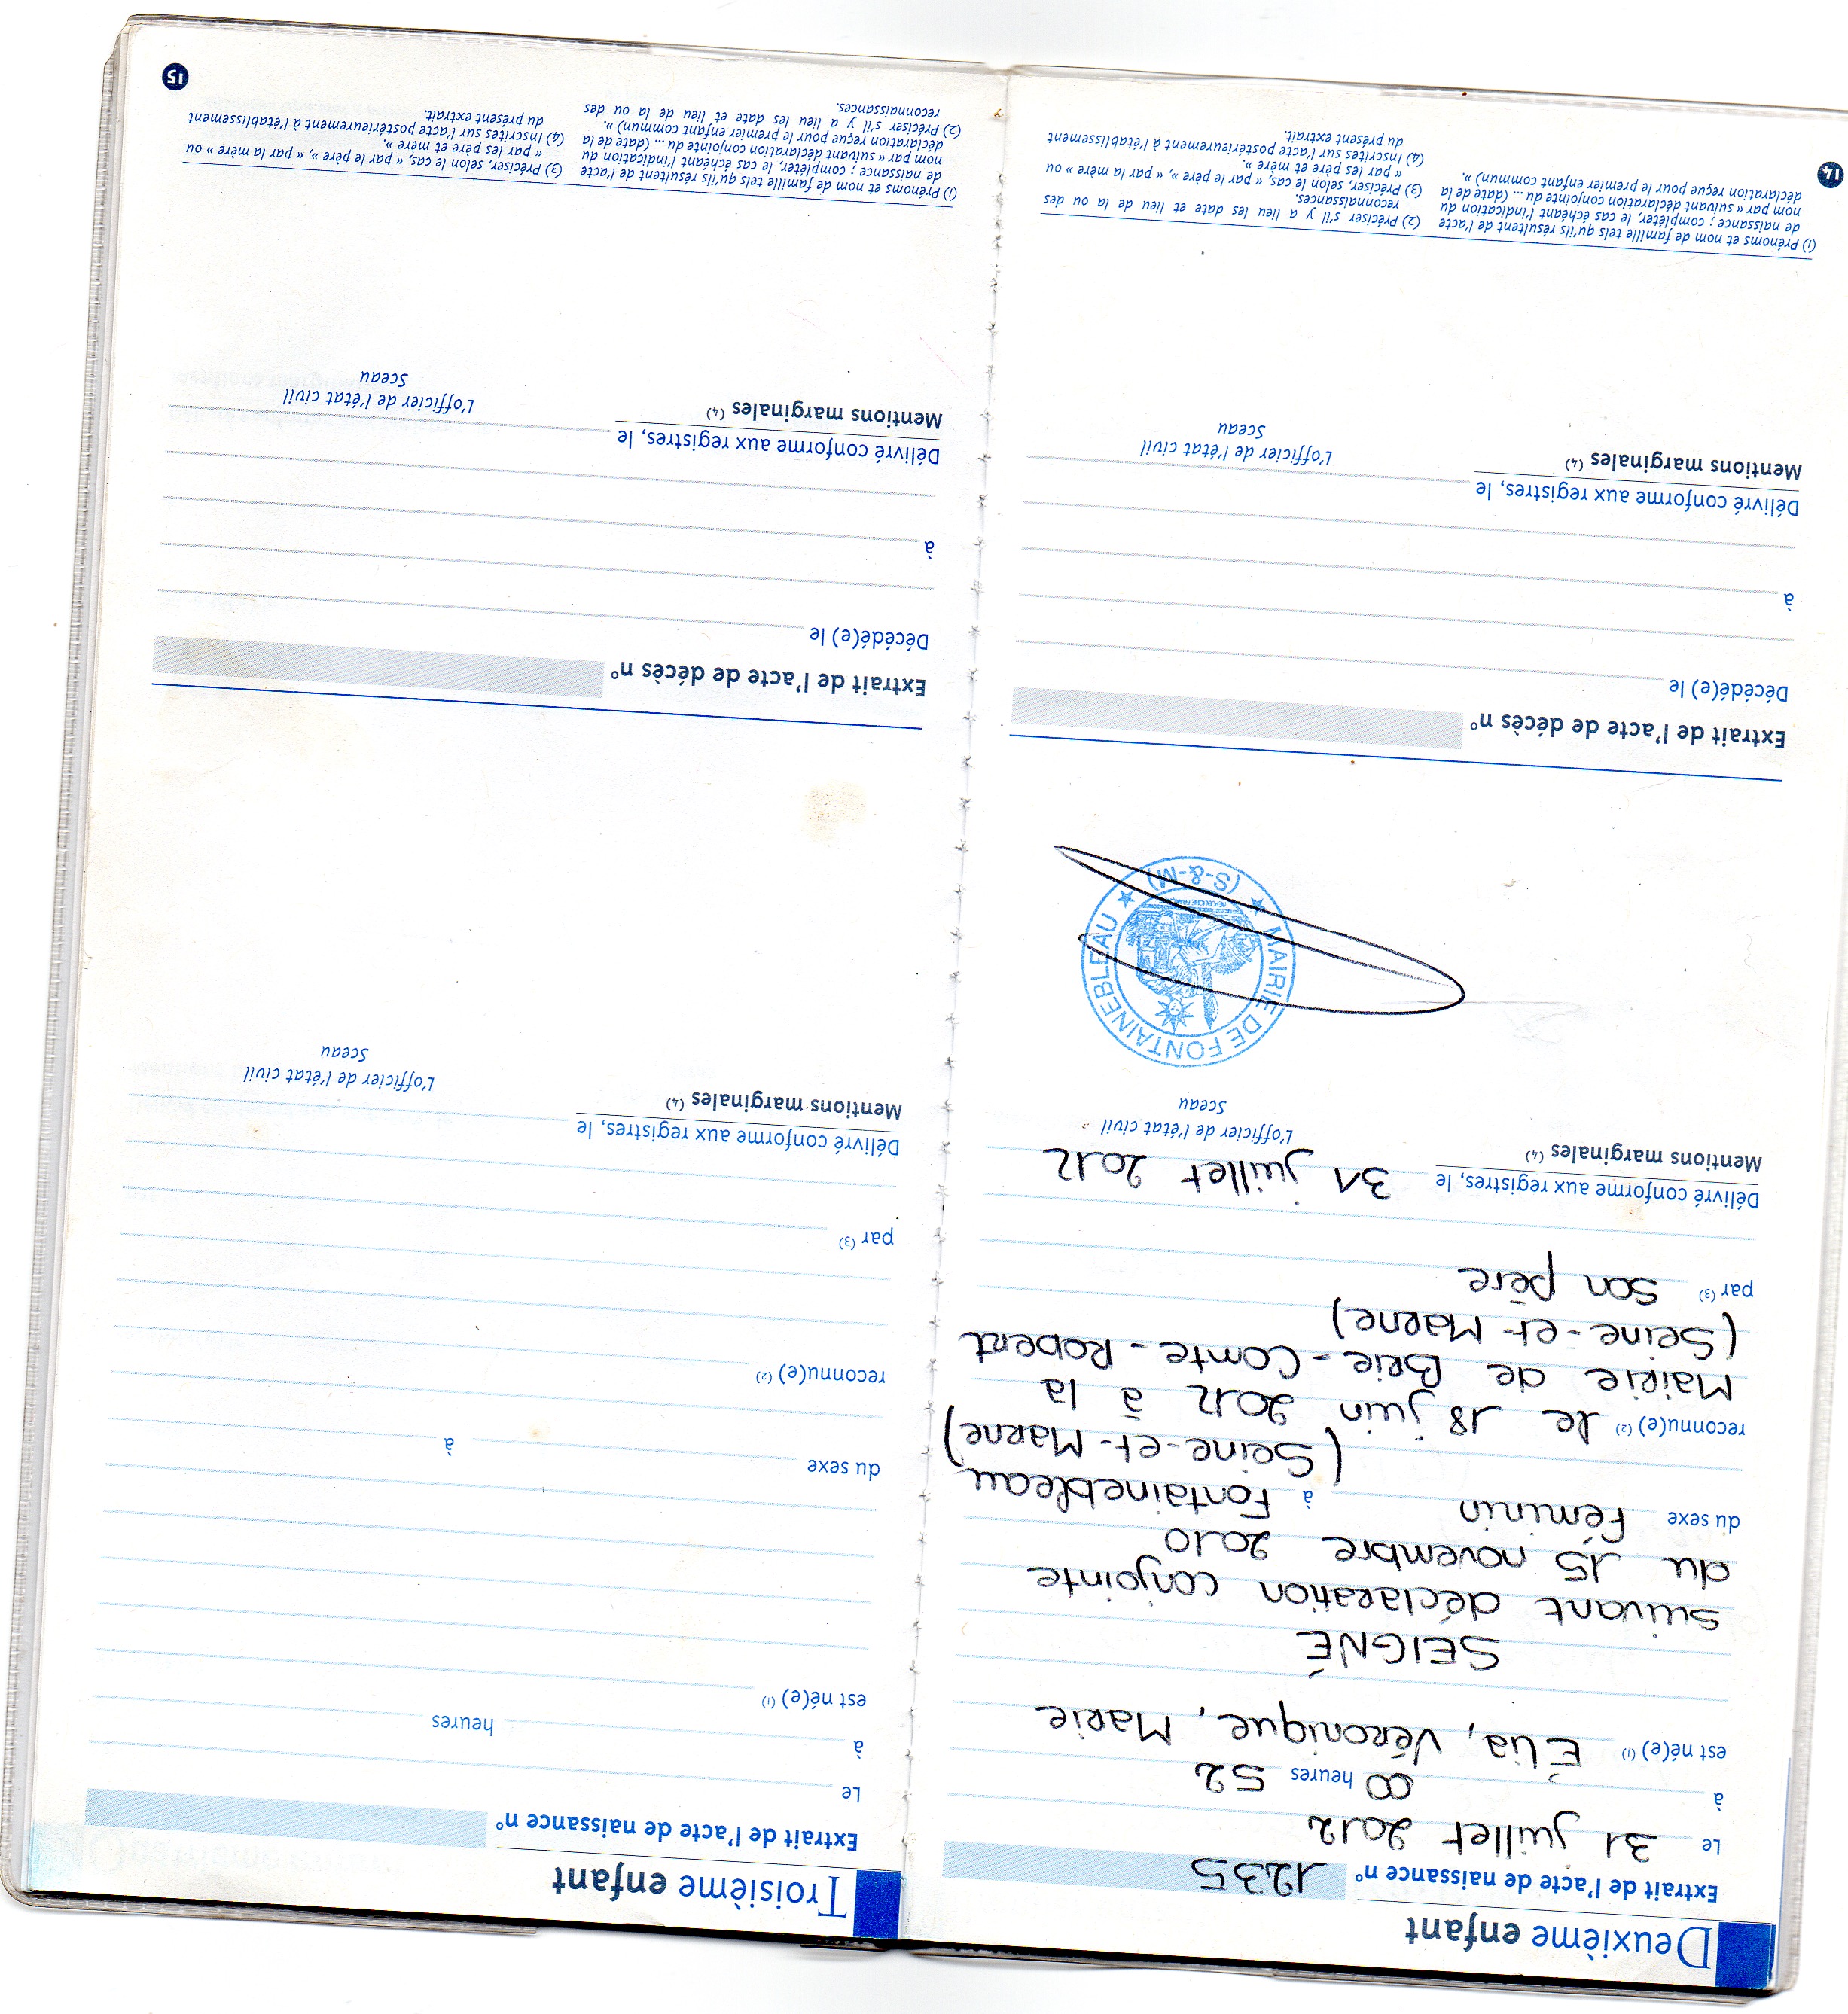 Deuxième enfant
Extrait de l'acte de naissance n° 1235
Le 31 juillet 2012
à 00 heures 52
est né(e) (1) Élia, Véronique, Marie
SEIGNÉ
suivant déclaration conjointe
du 15 novembre 2010
du sexe Féminin à Fontainebleau
(Seine-et-Marne)
reconnu(e) (2) le 18 juin 2012 à la
Mairie de Brie-Comte-Robert
(Seine-et-Marne)
par (3) son père
Délivré conforme aux registres, le 31 juillet 2012
Mentions marginales (4)
L'officier de l'état civil
Sceau
MAIRIE DE FONTAINEBLEAU
(S-&-M)
Extrait de l'acte de décès n°
Décédé(e) le
à
Délivré conforme aux registres, le
Mentions marginales (4)
L'officier de l'état civil
Sceau
(1) Prénoms et nom de famille tels qu'ils résultent de l'acte
de naissance ; compléter, le cas échéant l'indication du
nom par « suivant déclaration conjointe du ... (date de la
déclaration reçue pour le premier enfant commun) ».
(2) Préciser s'il y a lieu les date et lieu de la ou des
reconnaissances.
(3) Préciser, selon le cas, « par le père », « par la mère » ou
« par les père et mère ».
(4) Inscrites sur l'acte postérieurement à l'établissement
du présent extrait.
14
Troisième enfant
Extrait de l'acte de naissance n°
Le
à heures
est né(e) (1)
du sexe à
reconnu(e) (2)
par (3)
Délivré conforme aux registres, le
Mentions marginales (4)
L'officier de l'état civil
Sceau
Extrait de l'acte de décès n°
Décédé(e) le
à
Délivré conforme aux registres, le
Mentions marginales (4)
L'officier de l'état civil
Sceau
(1) Prénoms et nom de famille tels qu'ils résultent de l'acte
de naissance ; compléter, le cas échéant l'indication du
nom par « suivant déclaration conjointe du ... (date de la
déclaration reçue pour le premier enfant commun) ».
(2) Préciser s'il y a lieu les date et lieu de la ou des
reconnaissances.
(3) Préciser, selon le cas, « par le père », « par la mère » ou
« par les père et mère ».
(4) Inscrites sur l'acte postérieurement à l'établissement
du présent extrait.
15